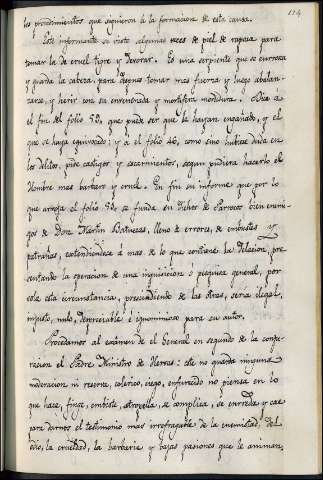 114
los procedimientos que siguieron á la formacion de esta causa.
Este informante se viste algunas veces de piel de raposa, para
tomar la de cruel tigre y devorar. Es una serpiente que se enrosca
y guarda la cabeza, para despues tomar mas fuerza y luego abalan-
zarse, y herir con su envenenada y mortifera mordedura. Dice á
el fin del folio 38, que puede ser que le hayan engañado, y el
que se haya equivocado; y á el folio 40, como sino hubiese duda en
los delitos, pide castigos y escarmientos, segun pudiera hacerlo el
hombre mas barbaro y cruel. En fin su informe que por lo
que arroja el folio se funda en dichos de Parrocos bien enemi-
gos de Don Martin Batuecas, lleno de errores, de embustes y
patrañas, extendiendose á mas de lo que contiene la Delacion, pre-
sentando la operacion de una inquisicion ó pesquisa general, por
sola esta circunstancia, prescindiendo de las otras, seria ilegal,
injusto, nulo, despreciable é ignominioso para su autor.
Procedamos al exámen de el General en segundo de la conspi-
racion el Padre Ministro de Hervas: este no guarda ninguna
moderacion ni reserva, colerico, ciego, enfurecido no piensa en lo
que hace, finge, embiste, atropella, se complica, se enrreda y cae
para darnos el testimonio mas irrefragable de la enemistad, del
odio, la crueldad, la barbarie y bajas pasiones que le animan.